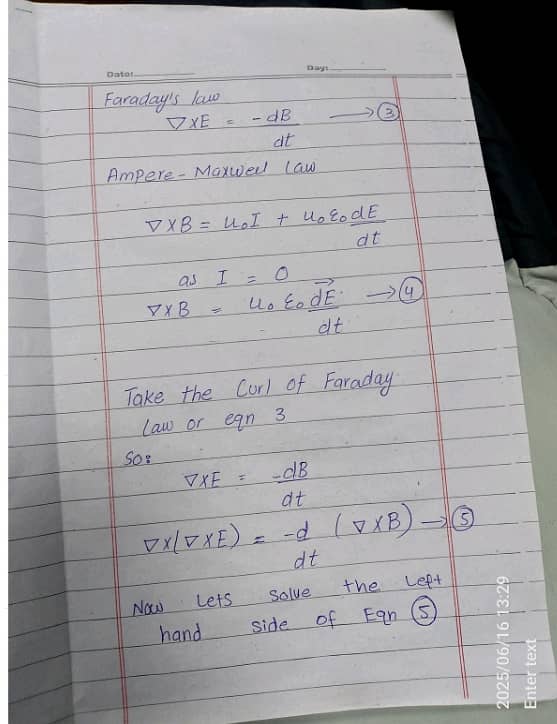 Date: Day:
Faraday's law
∇xE = -dB/dt → ③
Ampere - Maxwell law
∇XB = u₀I + u₀ε₀dE/dt
as I = 0
∇xB = u₀ε₀dE⃗/dt → ④
Take the Curl of Faraday
Law or eqn 3
So:
∇XE = -dB/dt
∇x(∇XE) = -d/dt (∇XB) → ⑤
Now Lets Solve the Left
hand side of Eqn ⑤
2025/06/16 13:29
Enter text